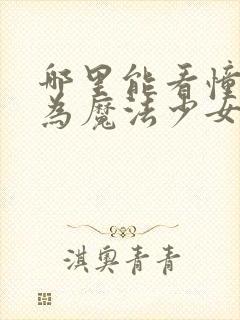 哪里能看憧
为魔法少女
淇奥青青